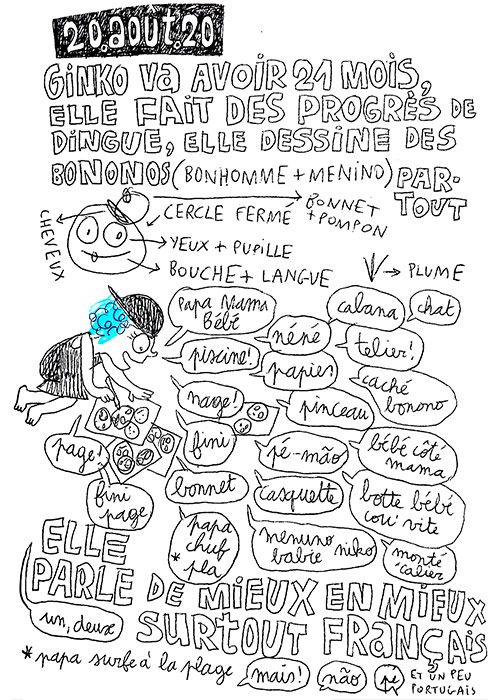 20.août.20
GINKO VA AVOIR 21 MOIS,
ELLE FAIT DES PROGRÈS DE
DINGUE, ELLE DESSINE DES
BONONOS (BONHOMME + MENINO) PAR-
TOUT
CHEVEUX
CERCLE FERMÉ
BONNET
+ POMPON
YEUX + PUPILLE
BOUCHE + LANGUE
PLUME
Papa Mama
Bébé
néné
cabana
chat
piscine!
papier
telier!
nage!
pinceau
caché
bonono
page!
fini
pé-mão
bébé côté
mama
fini
page
bonnet
casquette
botte bébé
cou' vite
* papa
chuf
pla
menuno niko
babie
monté
'calier
ELLE
PARLE DE MIEUX EN MIEUX
SURTOUT FRANÇAIS
un, deux
* papa surfe à la plage
mais!
não
ET UN PEU
PORTUGAIS